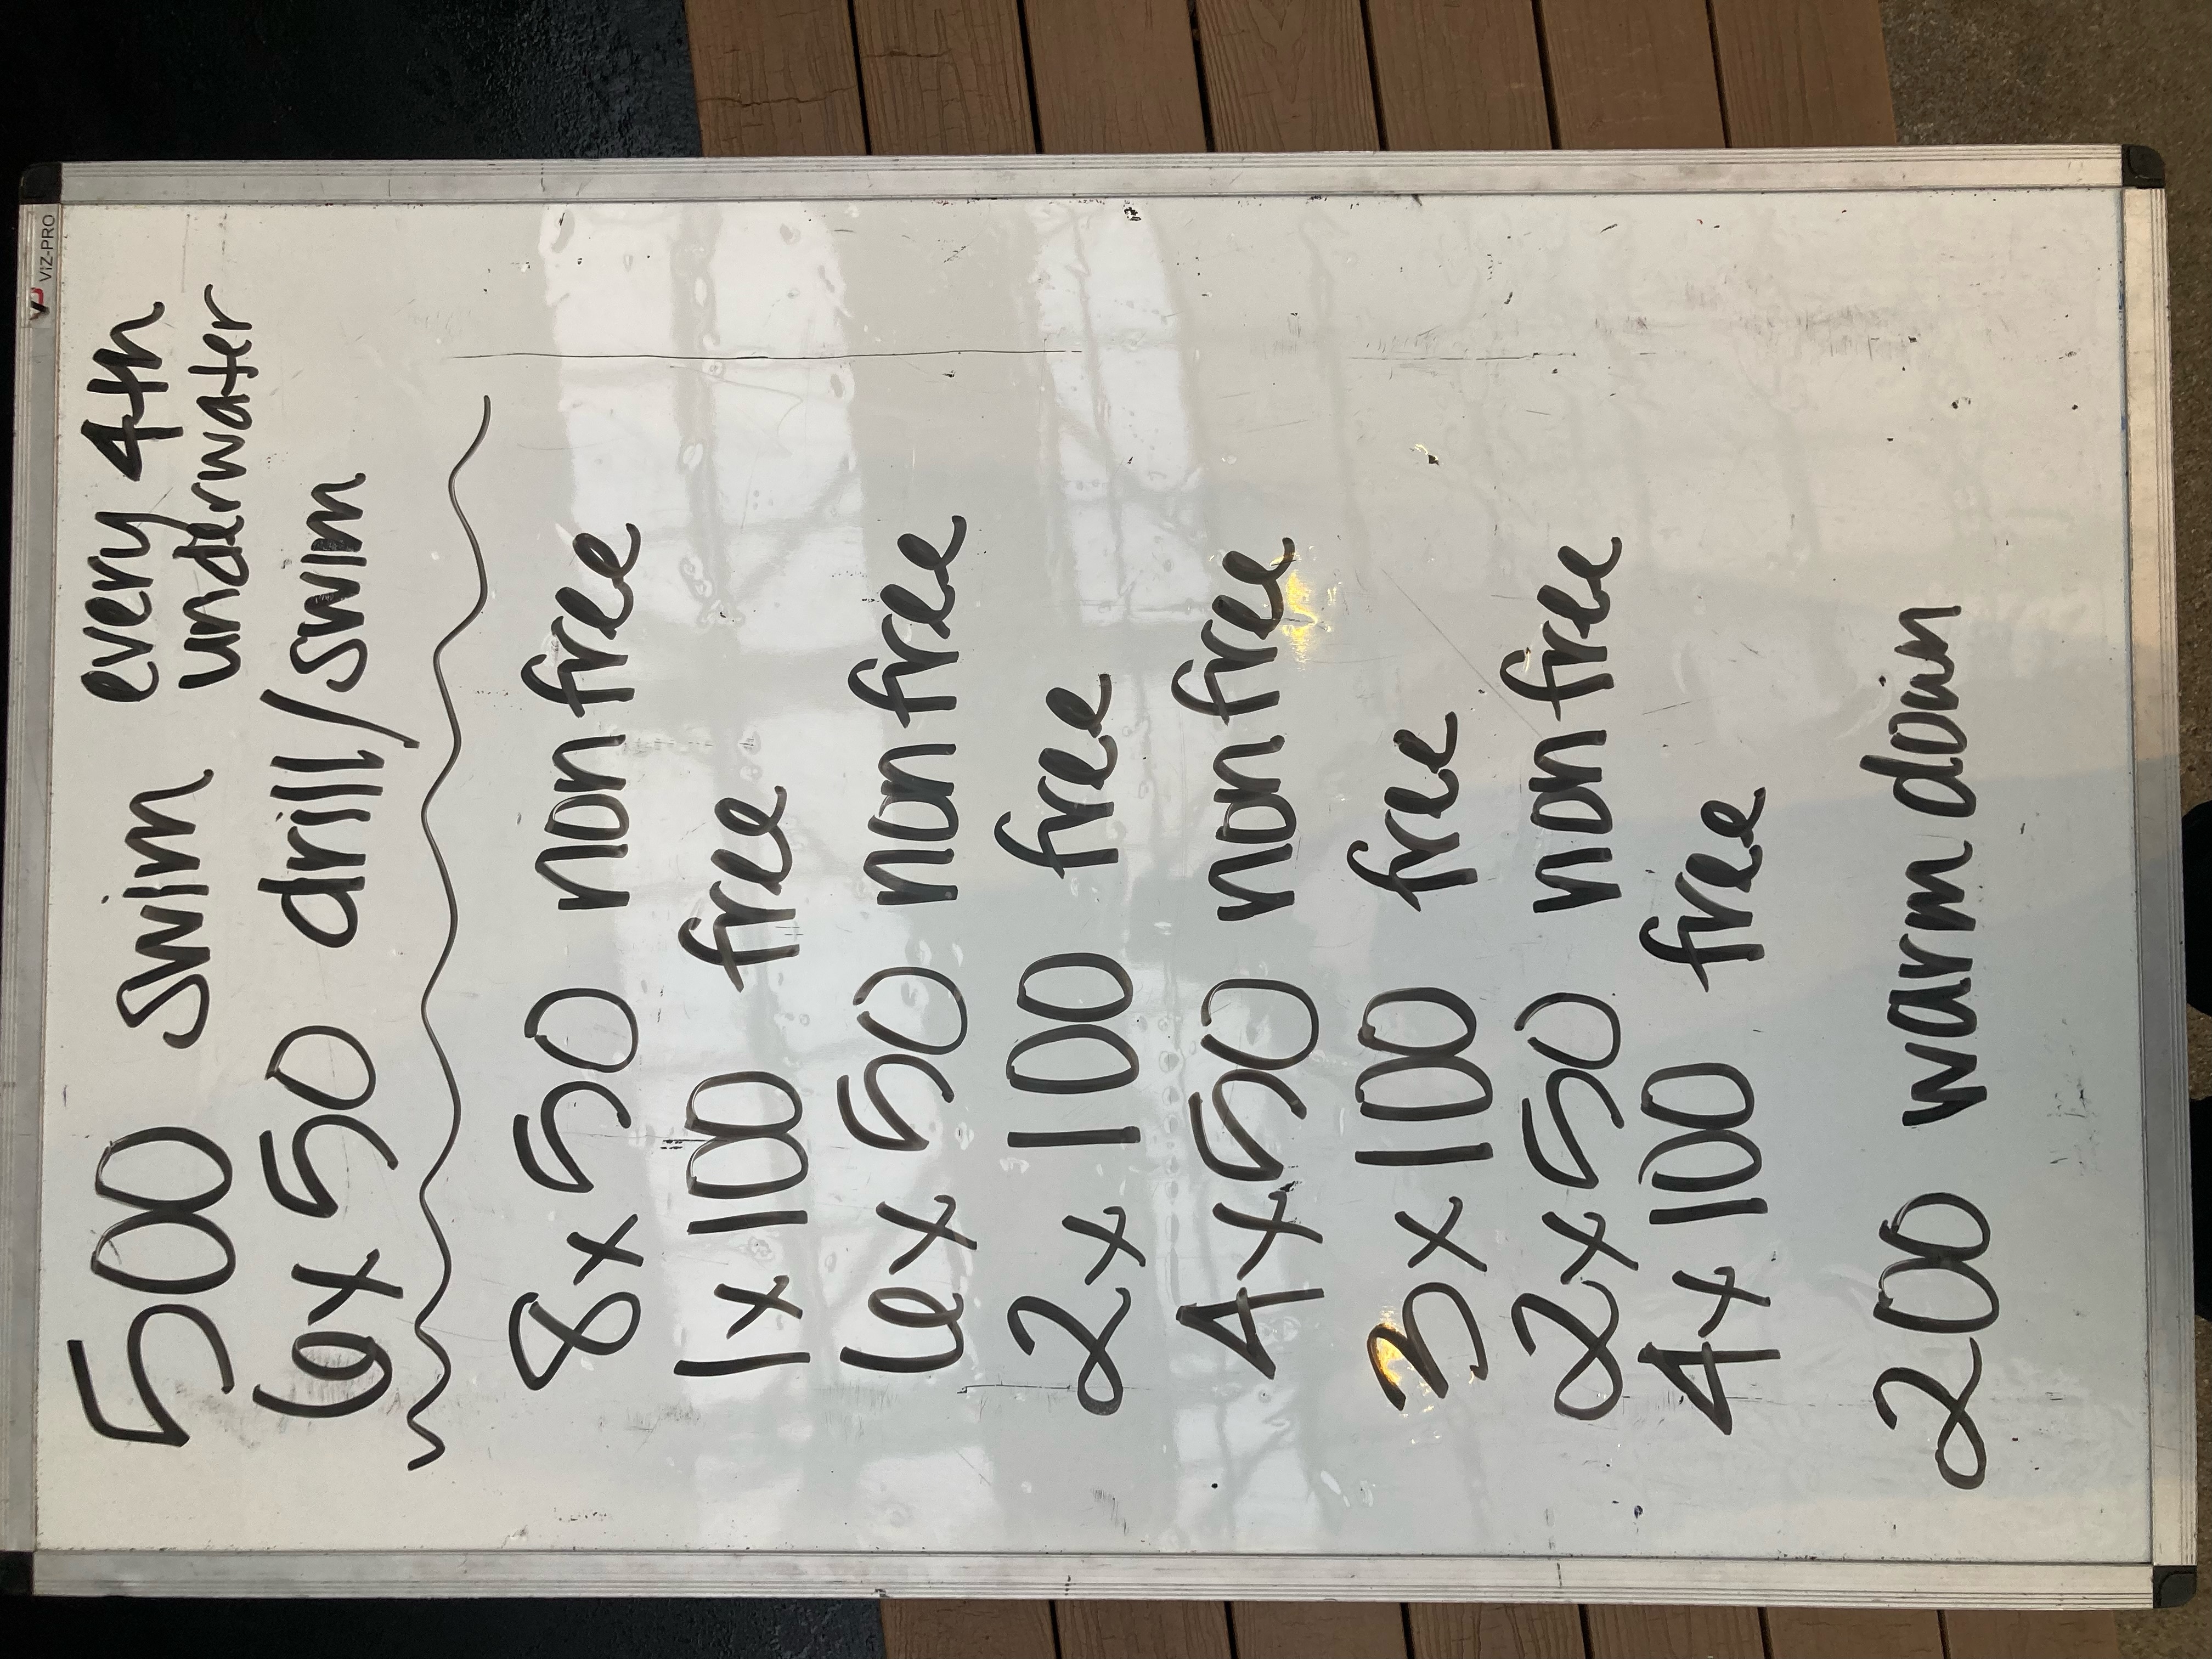 VIZ-PRO
500 swim every 4th
underwater
6x50 drill/swim
8x50 nonfree
1x100 free
6x50 nonfree
2x100 free
4x50 nonfree
3x100 free
2x50 nonfree
4x100 free
200 warm down